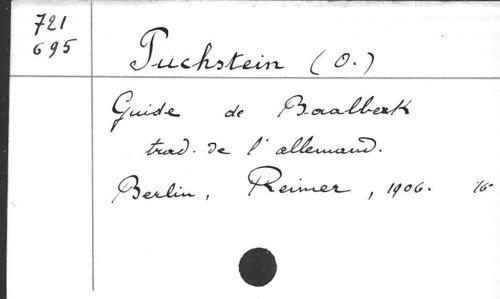 721
695
Puchstein (O.)
Guide de Baalbeck
trad. de l'allemand.
Berlin, Reimer, 1906. 16°